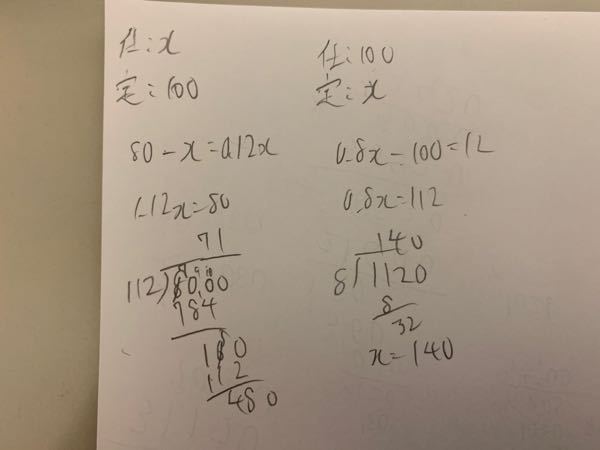 仕:x
定:100
80-x=0.12x
1.12x=80
71
112)80.00
784
160
112
480
仕:100
定:x
0.8x-100=12
0.8x=112
140
8)1120
8
32
x=140